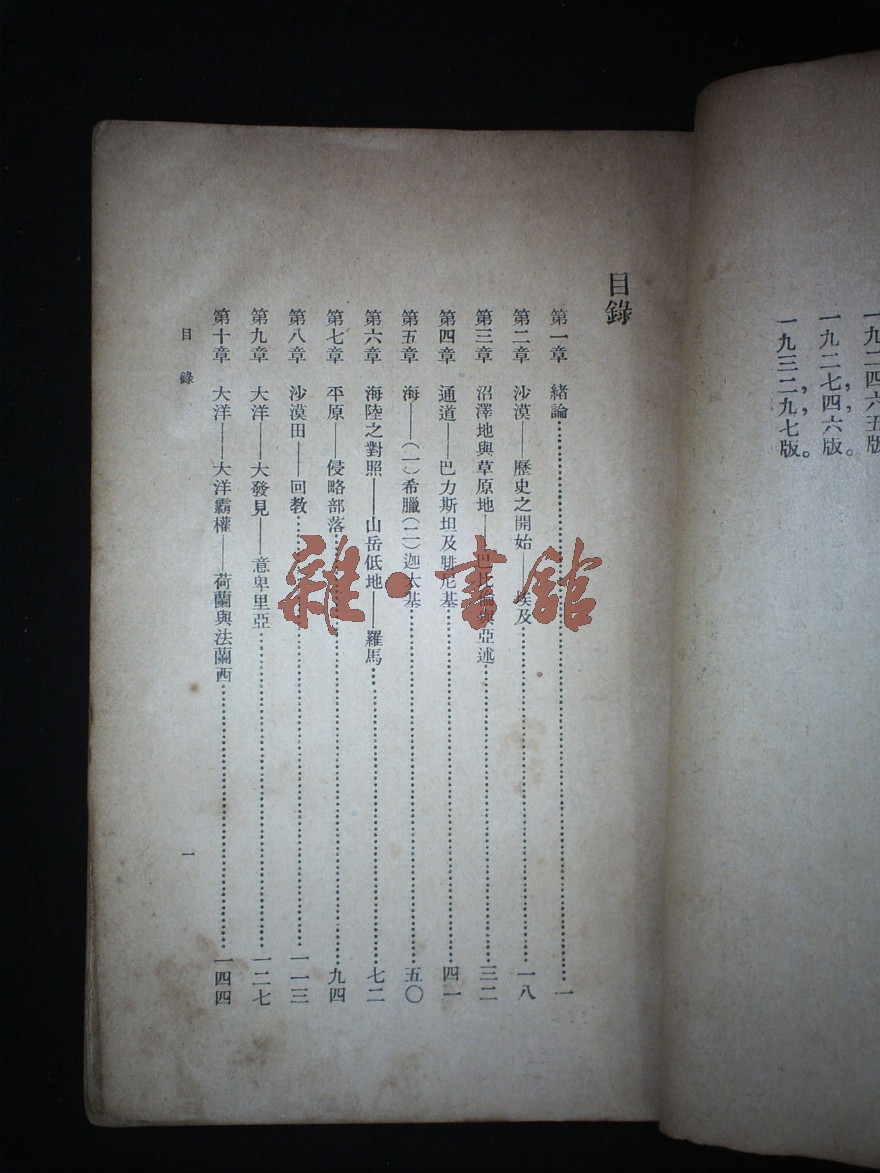 一九二七,四六版。
一九三二,九七版。
目錄
第一章 緒論……一
第二章 沙漠——歷史之開始——埃及……一八
第三章 沼澤地與草原地——巴比倫與亞述……三二
第四章 通道——巴力斯坦及腓尼基……四一
第五章 海——(一)希臘(二)迦太基……五〇
第六章 海陸之對照——山岳低地——羅馬……七二
第七章 平原——侵略部落……九四
第八章 沙漠田——回教……一一三
第九章 大洋——大發見——意卑里亞……一二七
第十章 大洋——大洋霸權——荷蘭與法蘭西……一四四
目錄 一
雜·書館